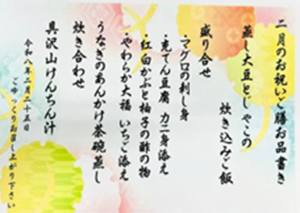 二月のお祝いご膳お品書き
蒸し大豆とじゃこの
炊き込みご飯
盛り合せ
・マグロの刺し身
・花てん豆腐 カニ身添え
・紅白かぶと柚子の酢の物
・やわらか大福 いちご添え
うなぎのあんかけ茶碗蒸し
炊き合わせ
具沢山けんちん汁
令和八年二月二十五日
ごゆっくりお召し上がり下さい